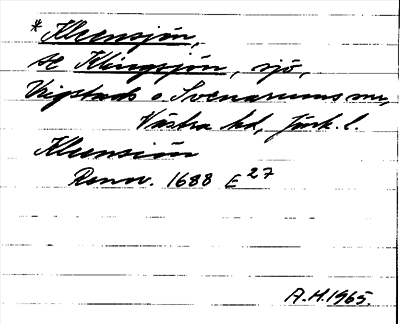 *Kleensjön,
se Klingsjön, sjö,
Vrigstads o. Svenarums snr,
Västra hd, Jönk. l.
Kleensiön
Renov. 1688 E 27
A.H. 1965.